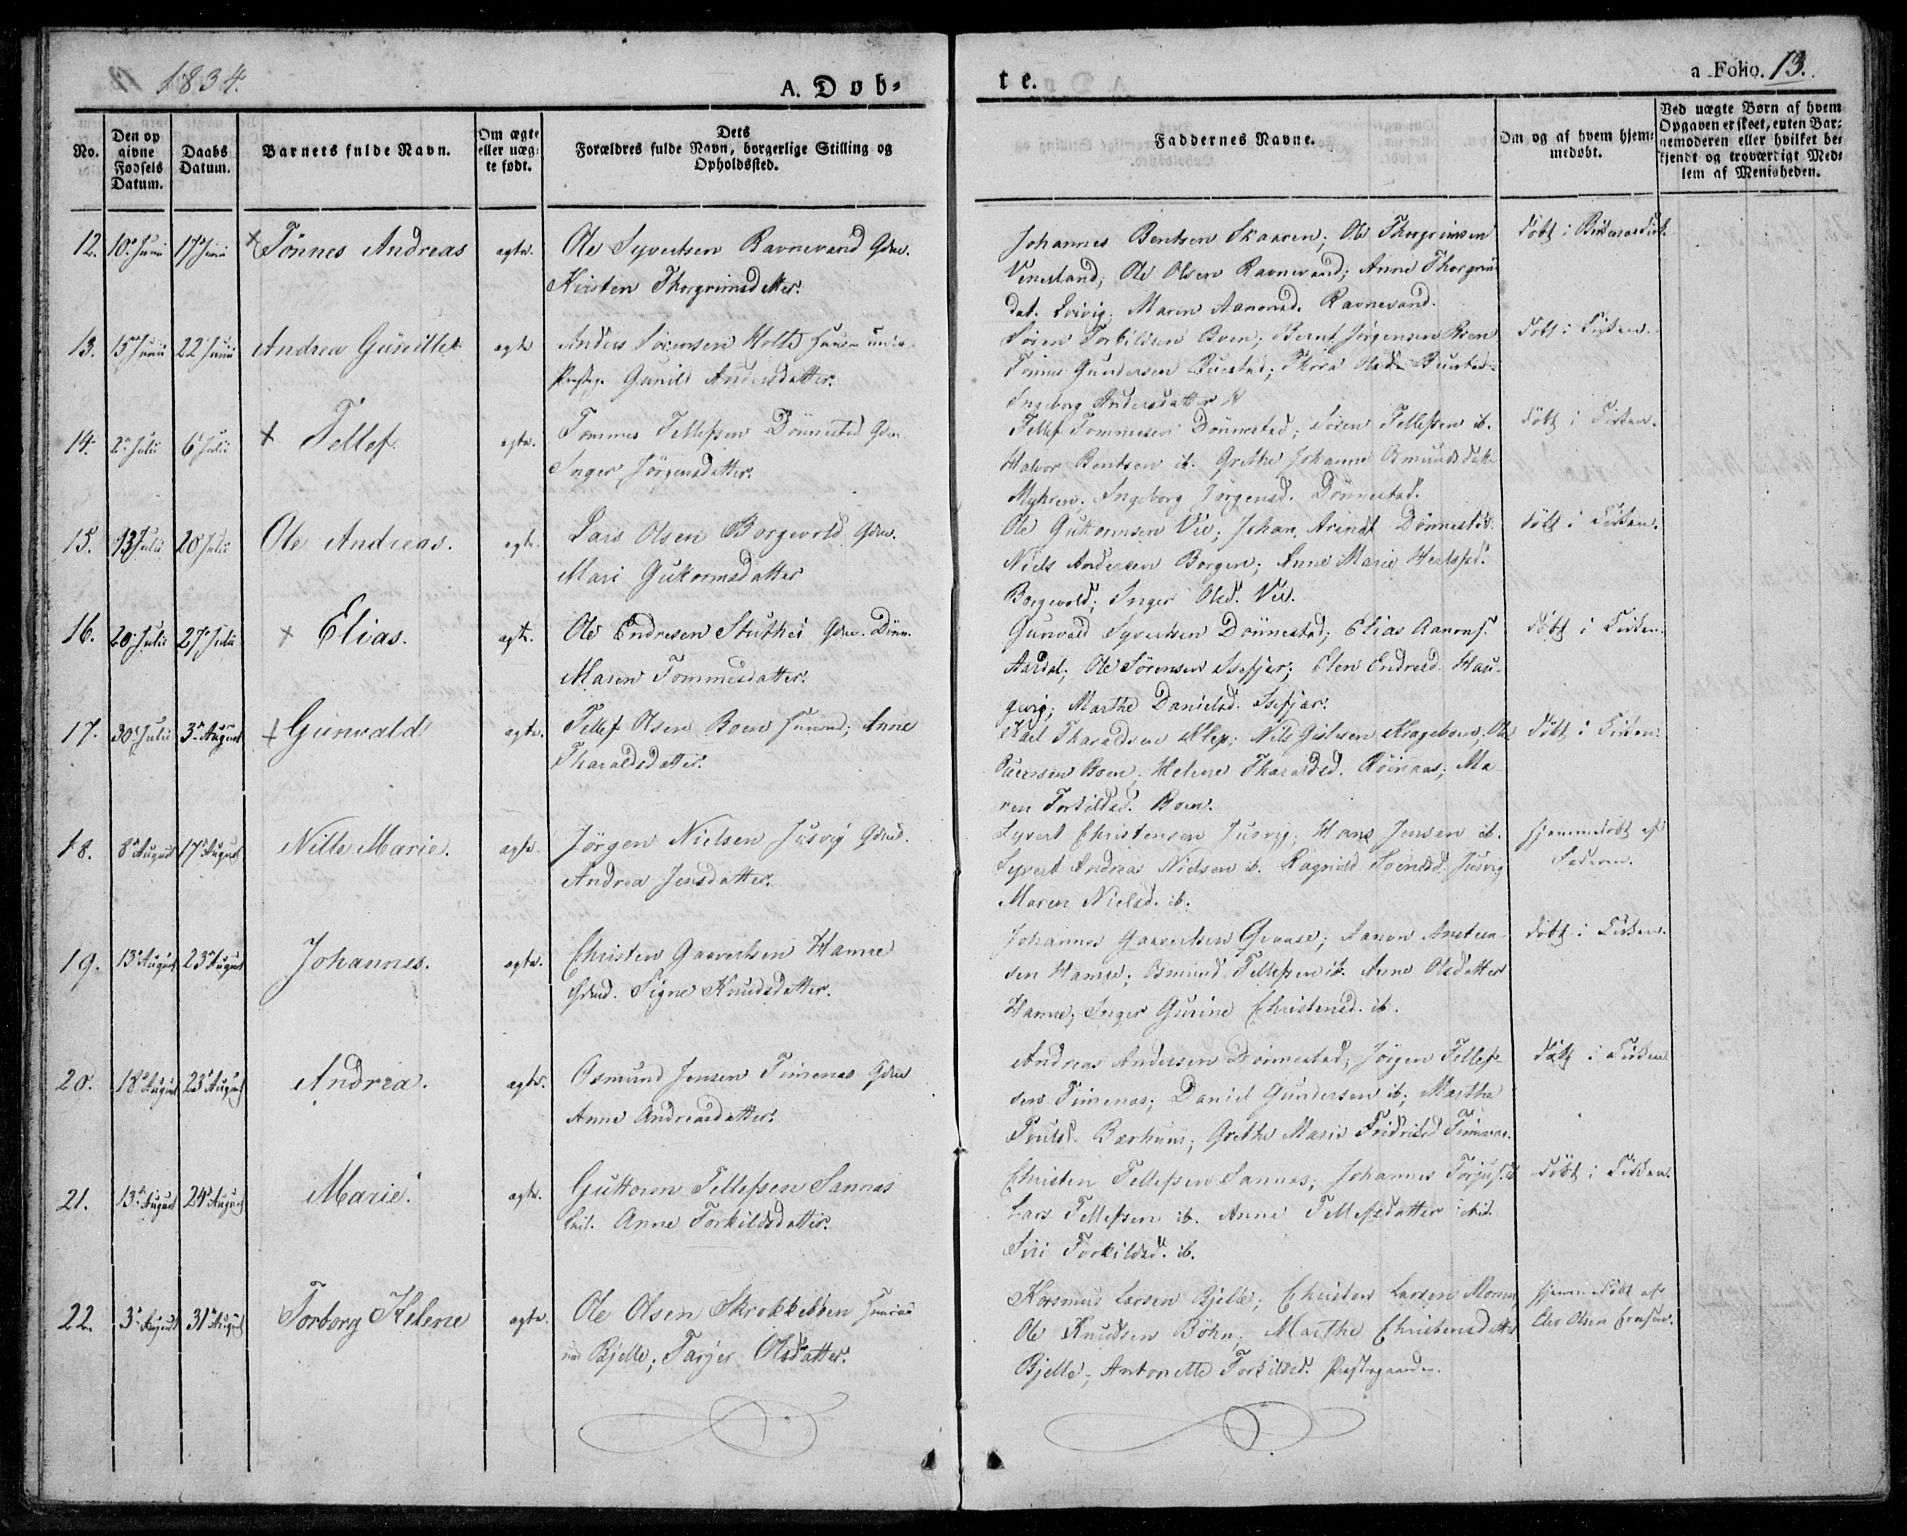 1834.
A. Døb-
te.
a Folio. 13.
No.
Den opgivne Fødsels Datum.
Daabs Datum.
Barnets fulde Navn.
Om ægte eller uægte født.
Dets Forældres fulde Navn, borgerlige Stilling og Opholdssted.
Faddernes Navne.
Om og af hvem hjemmedøbt.
Ved uægte Børn af hvem Opgaven er skeet, enten Barnemoderen eller hvilket bekjendt og troværdigt Medlem af Menigheden.
12. 10de Junii 17de Junii + Tønnes Andreas ægte. Ole Syvertsen Ravnevand Gdm.
Kirsten Thorgrimsdatter.
Johannes Bentsen Skaaren; Ole Thorgrimsen
Vennesland; Ole Olsen Ravnevand; Anne Thorgrims
dat. Maren Aanonsd. Ravnevand.
døbt i
13. 15de Junii 22de Junii Andrea Gunille ægte Anders Sørensen Holte
Gunild Andersdatter.
Søren Torkildsen Boen; Bernt Jørgensen Boen
Gundersen Buestad; Thora Olsd. Buestad.
Ingeborg Andersdatter
døbt i Kirken.
14. 2den Julii 6te Julii + Tellef. ægte. Tommes Tellefsen Dønnestad Gdm.
Inger Jørgensdatter.
Tellef Tommesen Dønnestad; Søren Tellefsen ib.
Halvor Bentsen ib. Grethe Johanne Osmundsdatter
Myhren; Ingeborg Jørgensd. Dønnestad.
døbt i Kirken.
15. 13de Julii 20de Julii Ole Andreas. ægte. Lars Olsen Borgevold Gdm.
Mari Guttormsdatter
Ole Guttormsen Vee; Johan Arendt Dønnestad
Niels Andersen Borgen; Anne Marie
Borgevold; Inger Olsd. Vee.
døbt i Kirken.
16. 20de Julii 27de Julii + Elias. ægte. Ole Endresen Stuthei Gdm. Dønn.
Maren Tommesdatter.
Gunvald Syvertsen Dønnestad; Elias Aanons.
Aardal; Ole Sørensen Isefjær; Elen Endresd. Hau-
gevig; Marthe Danielsd. Isefjær.
døbt i Kirken.
17. 30te Julii 3die August + Gunvald ægte. Tellef Olsen Boen Huusmd; Anne
Tharaldsdatter.
Tharaldsen Klep; Nils Krageboen; Ole
Boen; Helene Tharaldsd. Røinaas; Ma-
ren Torkildsd. Boen.
døbt i Kirken.
18. 8de August 17de August Nille Marie. ægte. Jørgen Nielsen Jusvig Gdmd.
Andrea Jensdatter.
Syvert Christensen Jusvig; Hans Jensen ib.
Syvert Andreas Nielsen ib. Ragnild Svendsd. Jusvig
Maren Nielsd. ib.
hjemmedøbt af
Faderen.
19. 13de August 23de August Johannes. ægte. Christen Gauvertsen Hamre
Gdmd. Signe Knudsdatter.
Johannes Gauvertsen Aanon
sen Hamre; Osmund Tellefsen ib. Anne Olsdatter
Hamre; Inger Gurine Christensd. ib.
døbt i Kirken.
20. 18de August 23de August Andrea. ægte. Osmund Jensen Timenes Gdm
Anne Andreasdatter.
Andreas Andersen Dønnestad; Jørgen Tellef-
sen Timenes; Daniel Gundersen ib; Marthe
Poulsd. Grethe Marie Fridriksd Timenes.
døbt i Kirken
21. 13de August 24de August Marie. ægte. Guttorm Tellefsen Sannas
Anne Torkildsdatter.
Christen Tellefsen Sannas; Johannes
Lars Tellefsen ib. Anne Tellefsdatter ib.
Siri Torkildsd. ib.
døbt i Kirken.
22. 3die August 31te August Torborg Helene ægte. Ole Olsen Skrokkebben
Bjelle; Tarjer Olsdatter.
Korsmus Larsen Bjelle; Christen Larsen
Ole Knudsen Bøhn; Marthe Christensdatter
Bjelle; Antonette Torkildsd. Præstegaarden.
hjemmedøbt af
Ole Olsen